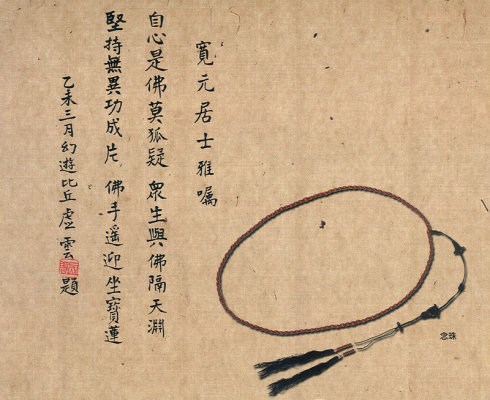 寬元居士雅囑
自心是佛莫狐疑 眾生與佛隔天淵
堅持無異功成片 佛手遥迎坐寶蓮
乙未三月幻遊比丘虛雲題
念珠